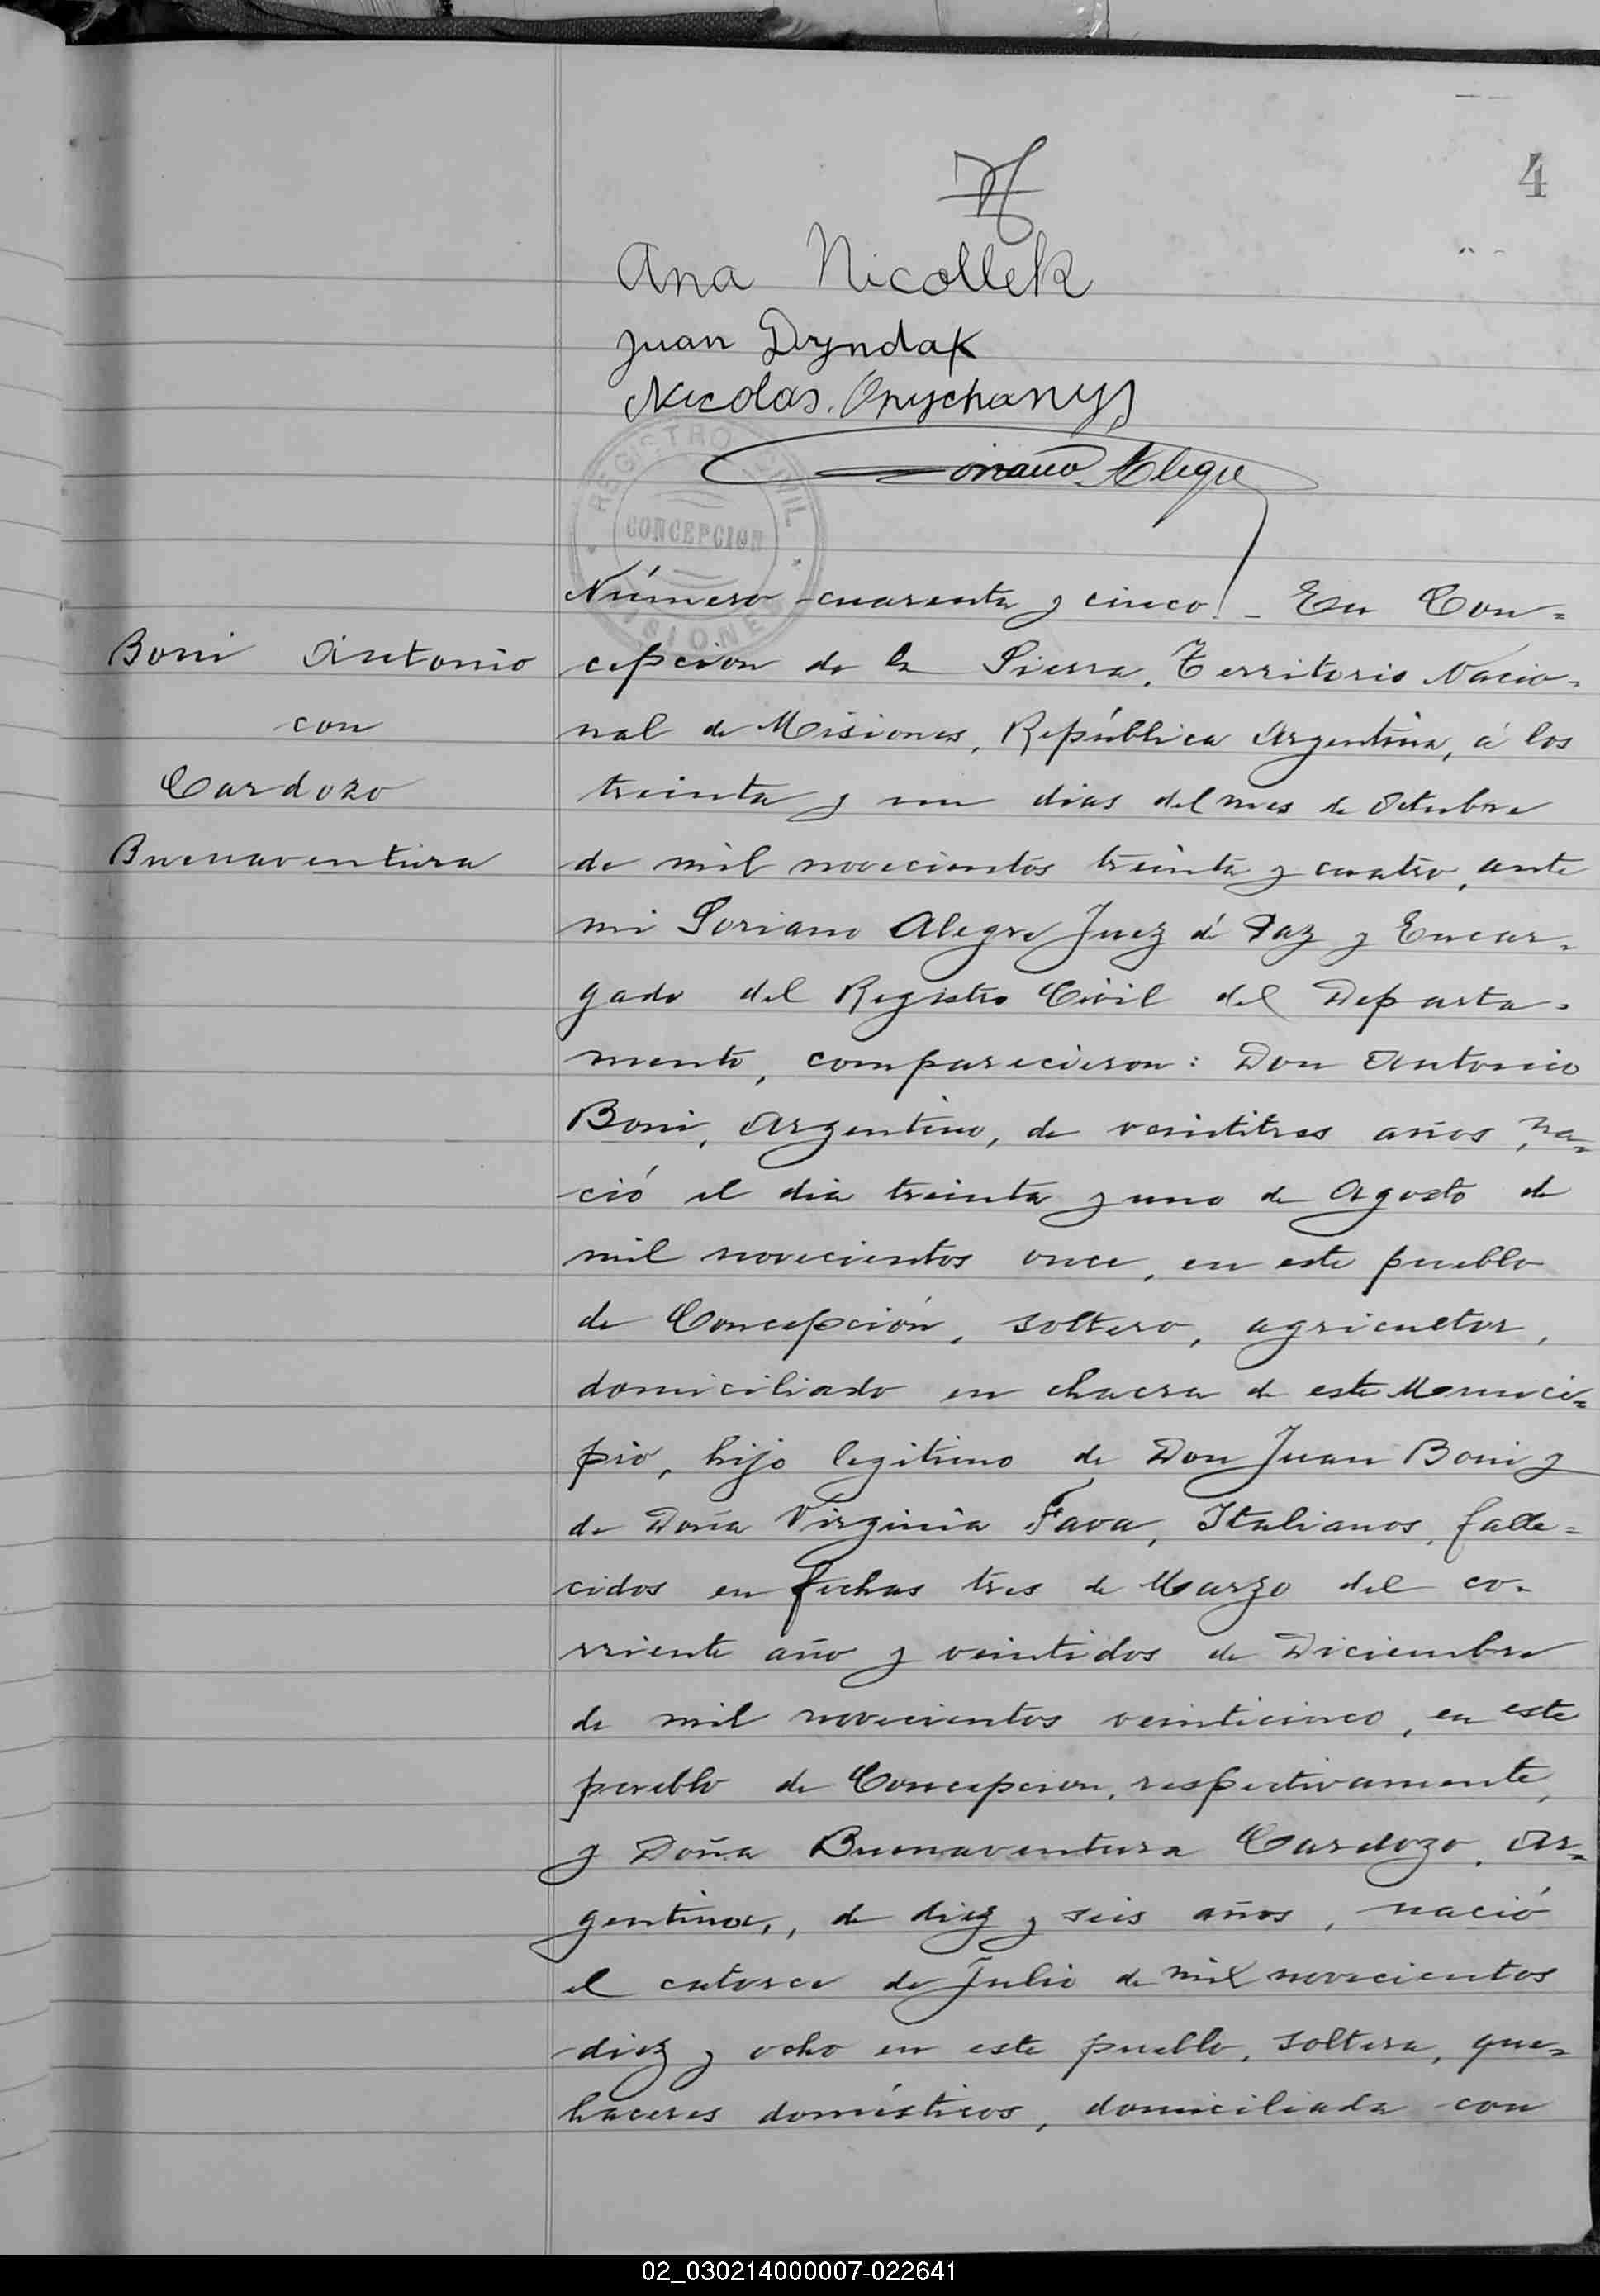 4
Ana Nicollek
Juan Dyndak
Nicolas
Soriano Alegre
REGISTRO CIVIL
CONCEPCION
MISIONES
Número cuarenta y cinco. - En Con=
Boni Antonio
con
Cardozo
Buenaventura
cepcion de la Sierra, Territorio Nacio=
nal de Misiones, República Argentina, á los
treinta y un dias del mes de Octubre
de mil novecientos treinta y cuatro, ante
mi Soriano Alegre Juez de Paz y Encar=
gado del Registro Civil del Departa=
mento, comparecieron: Don Antonio
Boni, Argentino, de veintitres años, na=
ció el dia treinta y uno de Agosto de
mil novecientos once, en este pueblo
de Concepción, soltero, agricultor,
domiciliado en chacra de este Munici=
pio, hijo legitimo de Don Juan Boni y
de Doña Virginia Fava, Italianos, falle=
cidos en fechas tres de Marzo del co=
rriente año y veintidos de Diciembre
de mil novecientos veinticinco, en este
pueblo de Concepcion, respectivamente,
y Doña Buenaventura Cardozo, Ar=
gentina,, de diez y seis años, nació
el catorce de Julio de mil novecientos
diez y ocho en este pueblo, soltera, que=
haceres domésticos, domiciliada con
02_030214000007-022641